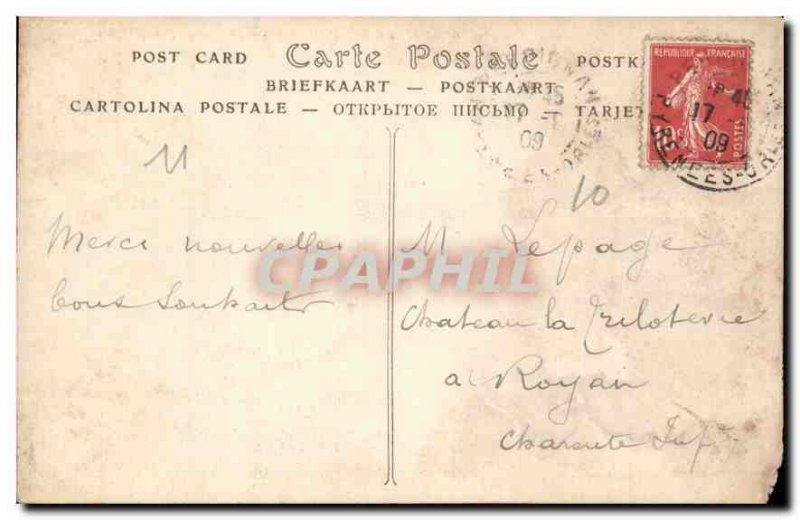 POST CARD Carte Postale POSTK
BRIEFKAART — POSTKAART
CARTOLINA POSTALE — ОТКРЫТОЕ ПИСЬМО — TARJET
REPUBLIQUE FRANÇAISE
POSTES
17
09
PYRENEES-OR
09
10
Merci nouvelles
bons souhaits
M. Lepage
Chateau la
a Royan
Charente Inf
CPAPHIL